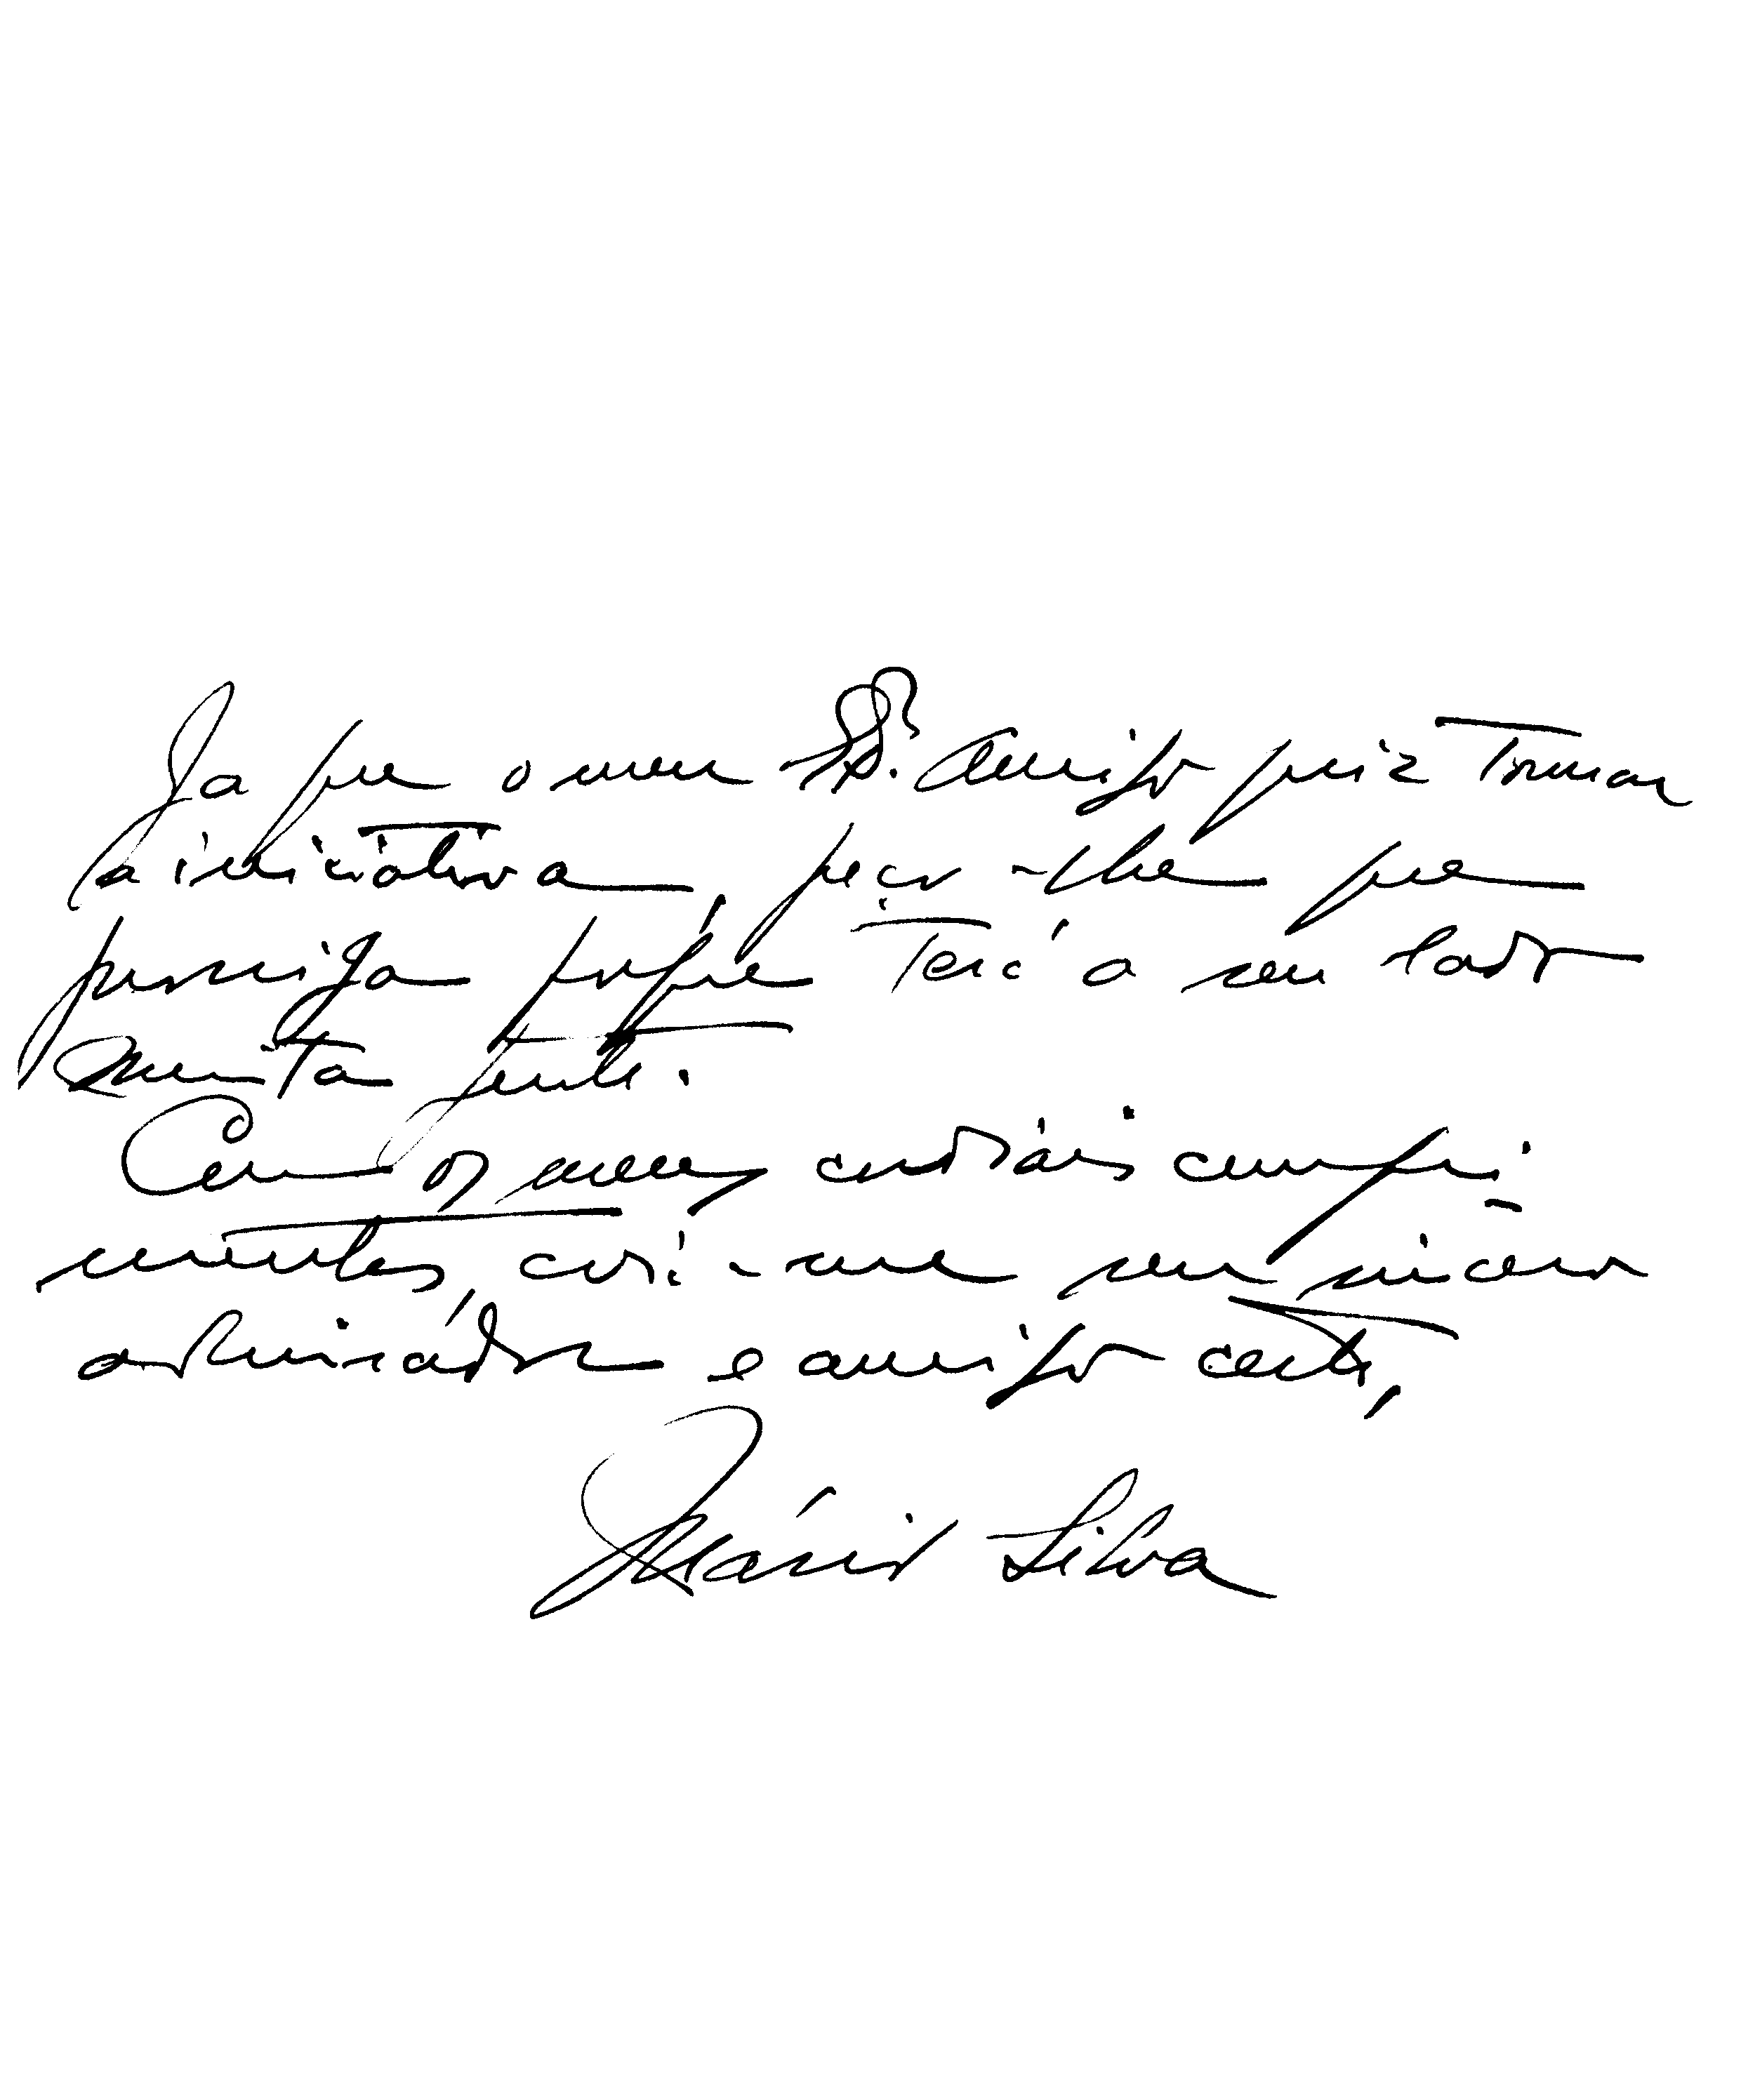 Ja que o meu Exº. Amigo quiz tomar
a iniciativa, peço-lhe que
prossiga porque terá a seu lado
muita gente.
Com os meus cordiais cumpri
mentos, creia-me seu sincero
admirador e amigo certo,
Mário Silva